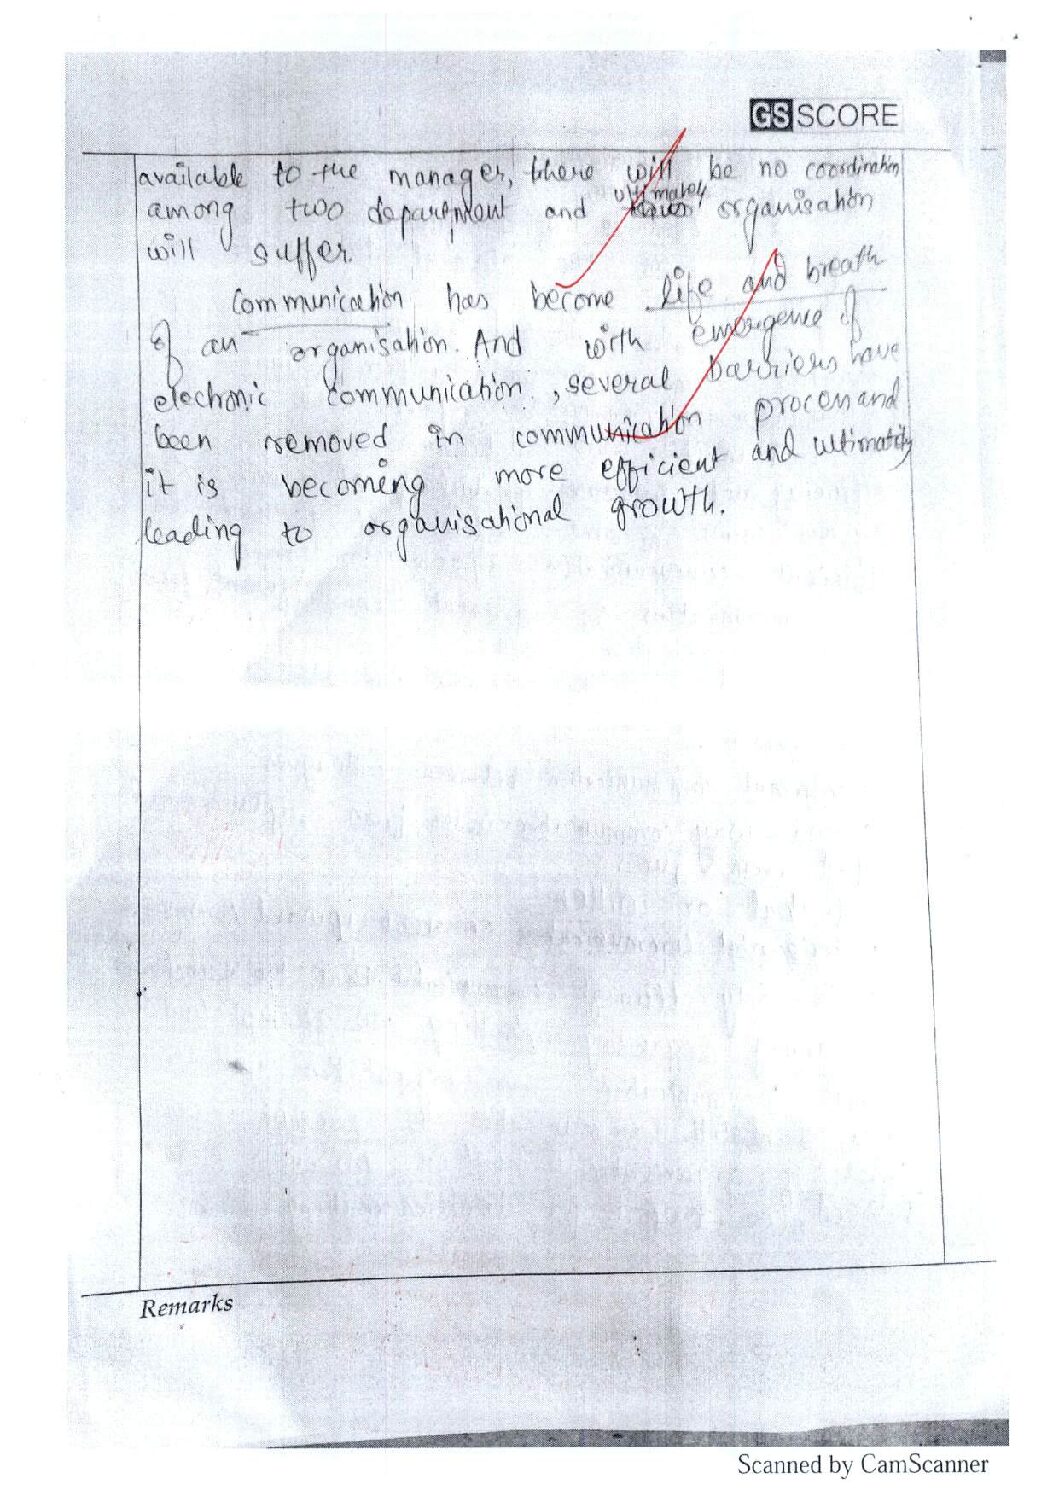 GS SCORE
available to the manager, there will be no coordination
among two department and ultimately organisation
will suffer.
Communication has become life and breath
of an organisation. And with emergence of
electronic communication, several barriers have
been removed in communication process and
it is becoming more efficient and ultimately
leading to organisational growth.
Remarks
Scanned by CamScanner